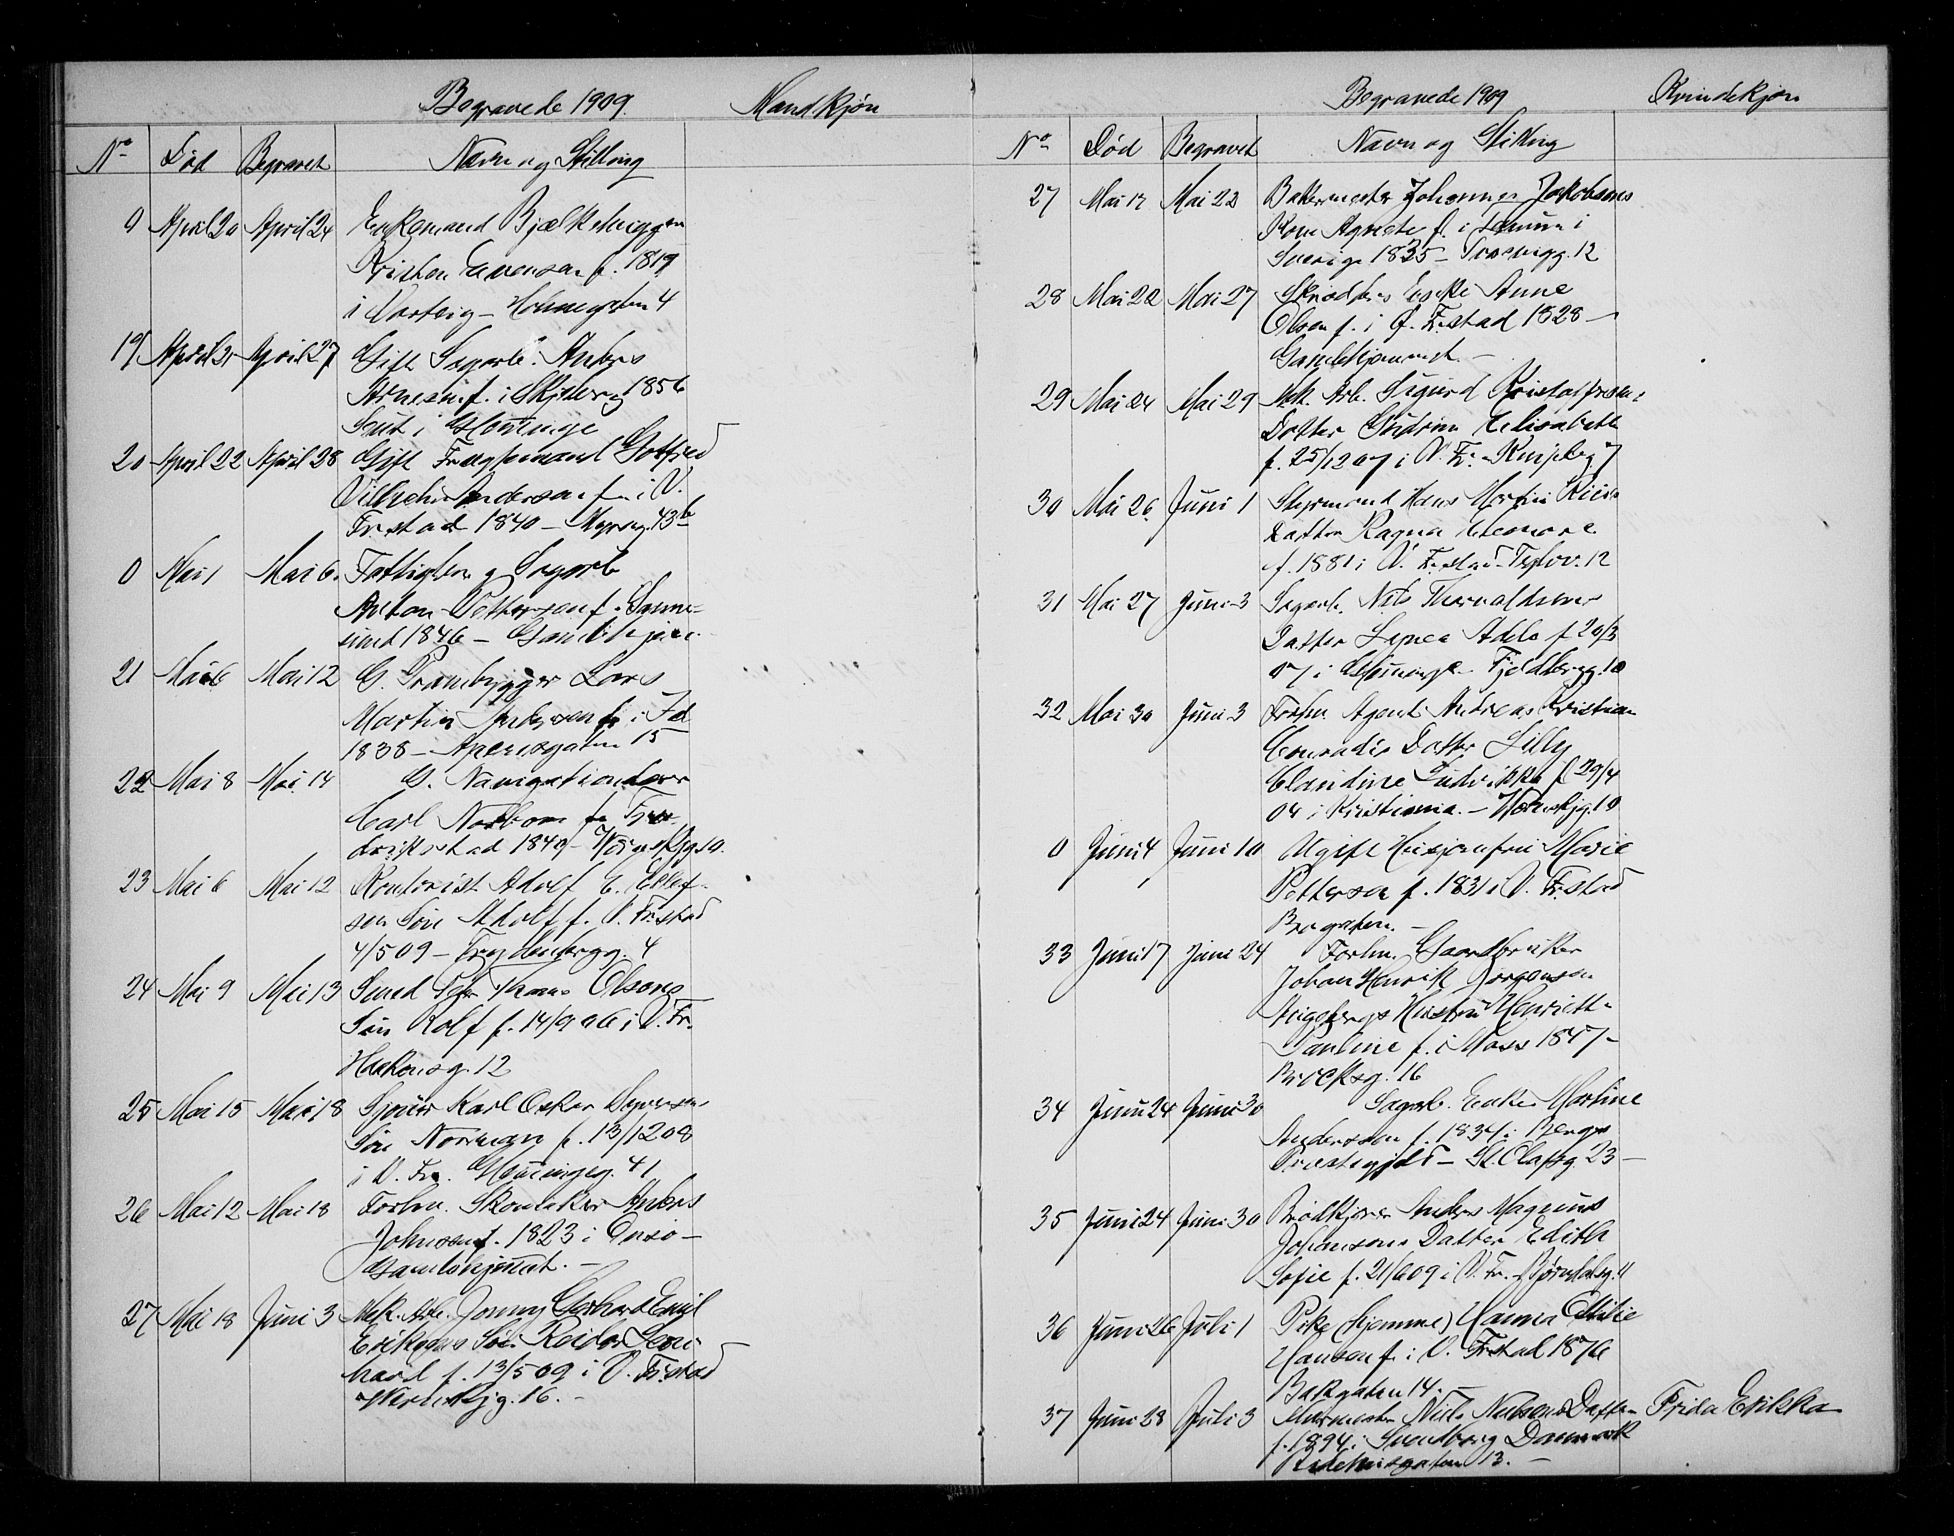 Begravede 1909. Mandkjøn
No Død Begravet Navn og Stilling
0 April 20 April 24 Enkemand Bjælkehugger
Kristen Evensen f. 1819
i Varteig - Holmegaten 4
19 April 21 April 27 Gift Sagarb. Anders
Arnesen f. i Skjeberg 1856
20 April 22 April 28 Gift Fragtemand Gotfred
Vilhelm Andersen f. i V.
Fr.stad 1840 -
0 Mai 1 Mai 6. Fattiglem g. Sagarb
Anton Pettersen f. Sanne-
sund 1846 - Gamlehjem
21 Mai 6 Mai 12 G. Prambygger Lars
Martin Andersen f. i Id
1838 - 15
22 Mai 8 Mai 14 G. Navigationslærer
Carl Norbom f. Fre-
drikstad 1840 -
23 Mai 6 Mai 12 Kontorist Adolf E.
sen Søn Adolf f. V. Fr.stad
4/5 09 - 4
24 Mai 9 Mai 13 Smed Olsens
Søn Rolf f. 14/9 06 i V. Fr.
Haakonsg. 12
25 Mai 15 Mai 18 Karl Oskar
Søn Norman f. 13/12 08
i V. Fr. 41
26 Mai 12 Mai 18 Forhv. Skomaker Anders
Johnsen f. 1823 i Onsø -
Gamlehjemmet. -
27 Mai 18 Juni 3 Mek. Arb. Gerhard Emil
Eriksens Søn Reidar
hard f. 13/5 09 i V. Fr.stad
16. -
Begravede 1909 Kvindekjøn
No Død Begravet Navn og Stilling
27 Mai 17 Mai 22 Bakermester Johannes Jakobsens
Kone Agnete f. i Tanum i
Sverige 1835 - 12
28 Mai 22 Mai 27 Skrædders Enke Anne
Olsen f. i Ø. Fr.stad 1828 -
Gamlehjemmet. -
29 Mai 24 Mai 29 Mek. Arb. Sigurd Kristoffersens
Datter Gudrun Elisabeth
f. 25/12 07 i V. Fr. - 7
30 Mai 26 Juni 1 Styrmand Hans Martin
Datter Ragna Eleonore
f. 1881 i V. Fr.stad 12
31 Mai 27 Juni 3 Sagarb. Nils Thorvaldsens
Datter Signea Adele f 20/3
07 i - Fjeldbergg. 10
32 Mai 30 Juni 3 Forhv Agent Andreas Kristian
Conradis Datter Lilly
Claudine Ludvikka f 29/4
04 i Kristiania. - 10
0 Juni 4 Juni 10 Ugift Husjomfru Marie
Pettersen f. 1831 i V. Fr.stad
Brogaten. -
33 Juni 17 Juni 24 Forhv. Gaardbruker
Johan Henrik Jørgensen
Hustru Henriette
Pauline f. i Moss 1847 -
Brocksg. 16
34 Juni 24 Juni 30 Sagarb. Enke Martine
Andersson f. 1834 i Berga
- St. Olafsg. 23 -
35 Juni 24 Juni 30 Brødkjører Anders Magnus
Johansens Datter Edith
Sofie f. 21/6 09 i V. Fr. 11
36 Juni 26 Juli 1 Pike (hjemme) Hanna Emilie
Hansen f. i V. Fr.stad 1876
Bakgaten 14. -
37 Juni 28 Juli 3 Murmester Niels Nielsens Datter Frida Erikka
f. 1894 i Svendborg Danmark
Ridehusgaten 13. -